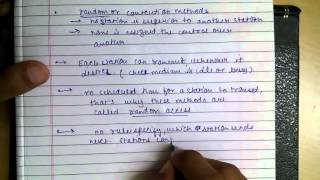 random or contention methods
→ no station is superior to another station
→ none is assigned the control over
another
→ Each station can transmit whenever it
desires (check medium is idle or busy)
→ no scheduled time for a station to transmit,
that's why these methods are
called random access
→ no rules specify which station sends
next. Stations